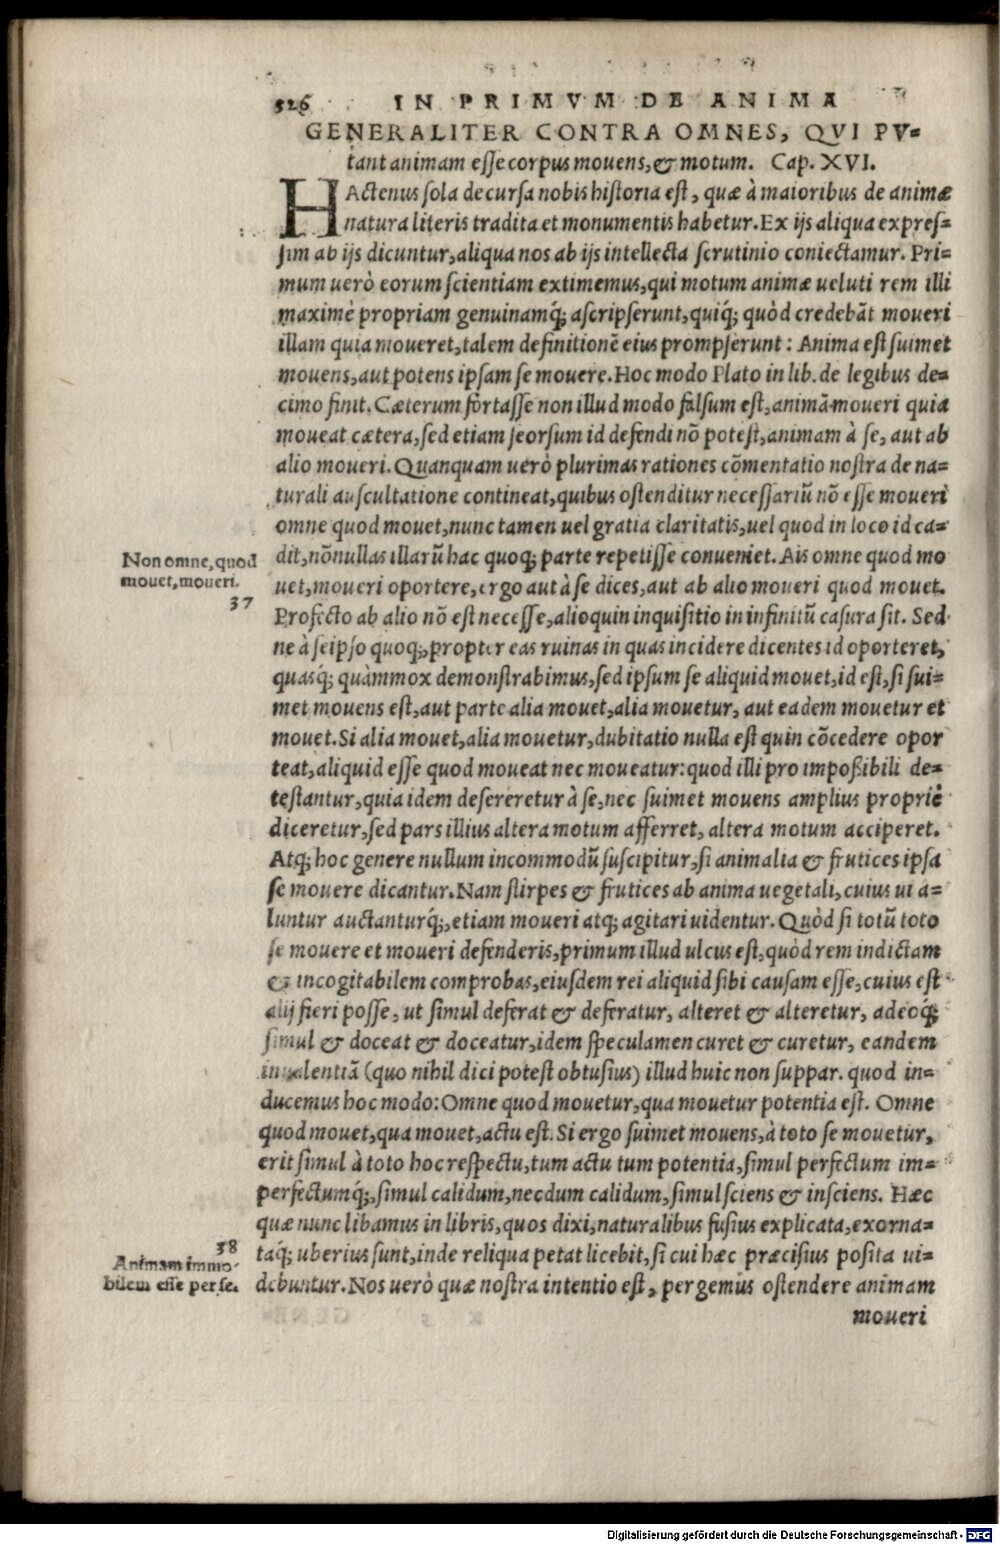 526 IN PRIMVM DE ANIMA
GENERALITER CONTRA OMNES, QVI PV=
tant animam esse corpus mouens, & motum. Cap. XVI.
HActenus sola decursa nobis historia est, quæ à maioribus de animæ
natura literis tradita et monumentis habetur. Ex ijs aliqua expres=
sim ab ijs dicuntur, aliqua nos ab ijs intellecta scrutinio coniectamur. Pri=
mum uerò eorum scientiam extimemus, qui motum animæ ueluti rem illi
maximè propriam genuinamq́; ascripserunt, quiq́; quòd credebãt moueri
illam quia moueret, talem definitionẽ eius prompserunt: Anima est suimet
mouens, aut potens ipsam se mouere. Hoc modo Plato in lib. de legibus de=
cimo finit. Cæterum fortasse non illud modo falsum est, animã moueri quia
moueat cætera, sed etiam seorsum id defendi nõ potest, animam à se, aut ab
alio moueri. Quanquam uerò plurimas rationes cõmentatio nostra de na=
turali auscultatione contineat, quibus ostenditur necessariũ nõ esse moueri
omne quod mouet, nunc tamen uel gratia claritatis, uel quod in loco id ca=
dit, nõnullas illarũ hac quoq; parte repetisse conueniet. Ais omne quod mo
uet, moueri oportere, ergo aut à se dices, aut ab alio moueri quod mouet.
Profecto ab alio nõ est necesse, alioquin inquisitio in infinitũ casura sit. Sed
ne à seipso quoq;, propter eas ruinas in quas incidere dicentes id oporteret,
quasq́; quàm mox demonstrabimus, sed ipsum se aliquid mouet, id est, si sui=
met mouens est, aut parte alia mouet, alia mouetur, aut eadem mouetur et
mouet. Si alia mouet, alia mouetur, dubitatio nulla est quin cõcedere opor
teat, aliquid esse quod moueat nec moueatur: quod illi pro impoßibili de=
testantur, quia idem desereretur à se, nec suimet mouens amplius propriè
diceretur, sed pars illius altera motum afferret, altera motum acciperet.
Atq; hoc genere nullum incommodũ suscipitur, si animalia & frutices ipsa
se mouere dicantur. Nam stirpes & frutices ab anima uegetali, cuius ui a=
luntur auctanturq́;, etiam moueri atq; agitari uidentur. Quòd si totũ toto
se mouere et moueri defenderis, primum illud ulcus est, quòd rem indictam
& incogitabilem comprobas, eiusdem rei aliquid sibi causam esse, cuius est
alij fieri posse, ut simul deferat & deferatur, alteret & alteretur, adeoq́;
simul & doceat & doceatur, idem speculamen curet & curetur, eandem
(quo nihil dici potest obtusius) illud huic non suppar. quod in=
ducemus hoc modo: Omne quod mouetur, qua mouetur potentia est. Omne
quod mouet, qua mouet, actu est. Si ergo suimet mouens, à toto se mouetur,
erit simul à toto hoc respectu, tum actu tum potentia, simul perfectum im=
perfectumq́;, simul calidum, necdum calidum, simul sciens & insciens. Hæc
quæ nunc libamus in libris, quos dixi, naturalibus fusius explicata, exorna=
taq́; uberius sunt, inde reliqua petat licebit, si cui hæc præcisius posita ui=
debuntur. Nos uerò quæ nostra intentio est, pergemus ostendere animam
moueri
Non omne, quod
mouet, moueri.
37
38
Animam immo-
bilem esse per se.
Digitalisierung gefördert durch die Deutsche Forschungsgemeinschaft - DFG